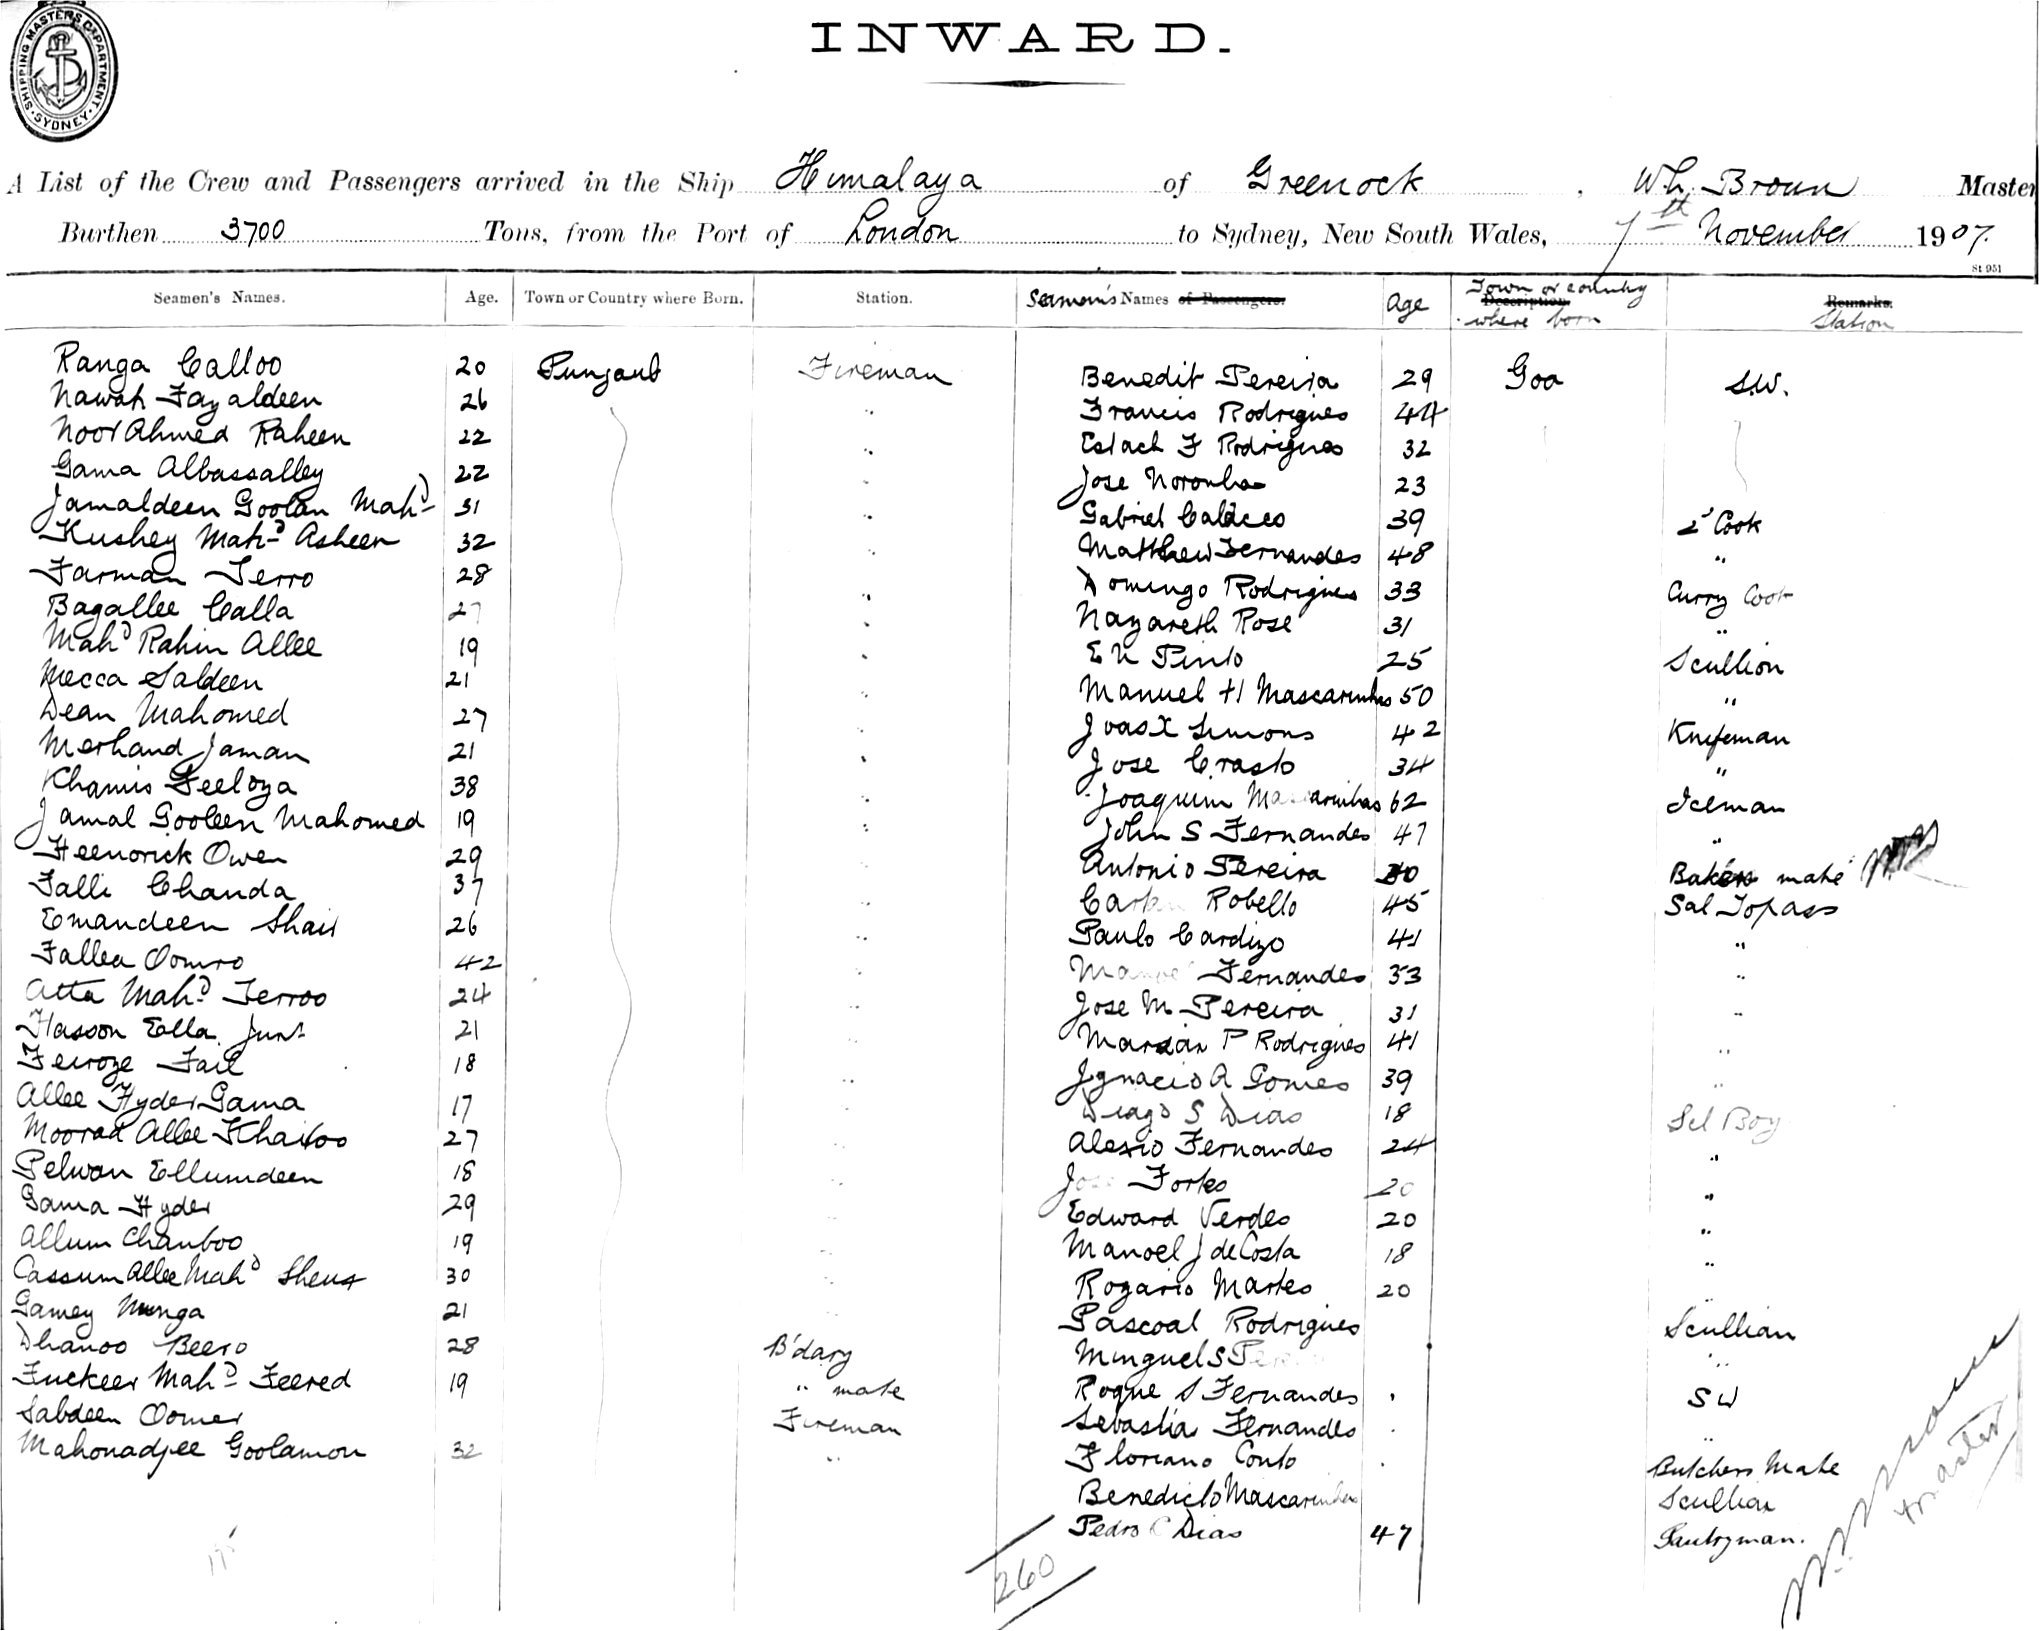 SHIPPING MASTERS DEPARTMENT
SYDNEY
INWARD.
A List of the Crew and Passengers arrived in the Ship Himalaya of Greenock, Wh. Broun Master
Burthen 3700 Tons, from the Port of London to Sydney, New South Wales, 7th November 1907.
St 951
Seamen's Names. Age. Town or Country where Born. Station. Seamen's Names of Passengers. Age Town or country where born Description Remarks. Station
Ranga Calloo 20 Punjaub Fireman Benedit Pereira 29 Goa S.W.
Nawab Fazaldeen 26 " Francis Rodrigues 44
Noor Ahmed Raheem 22 " Estach F Rodrigues 32
Gama Albassalley 22 " Jose Noronha 23
Jamaldeen Goolan Mahd 31 " Gabriel 39 2d Cook
Kushey Mahd Asheen 32 " Matthew Fernandes 48 "
Farman Jerro 28 " Domingo Rodrigues 33 Curry Cook
Bagallee Calla 27 " Nazareth Rose 31 "
Mahd Rahim Allee 19 " E N Pinto 25 Scullion
Mecca Saldeen 21 " Manuel H Mascarinhas 50 "
Dean Mahomed 27 " Joas X Simons 42 Knifeman
Merhand Jaman 21 " Jose Crasto 34 "
Khamis Feeloza 38 " Joaquim Mascarinhas 62 Iceman
Jamal Gooleen Mahomed 19 " John S Fernandes 47 "
Heenorick Owen 29 Antonio Pereira Bakers mate
Falli Chanda 37 " Robello 45 Sal Topass
Emandeen Shair 26 " Paulo Cardizo 41 "
Fallea Oomro 42 " Manoel Fernandes 33 "
Atta Mahd Jerroo 24 " Jose M Pereira 31 "
Hasson Ella Junr 21 " P Rodrigues 41 "
Feiroze Fail 18 " Ignacio A Gomes 39 "
Allee Hyder Gama 17 " Diago S Dias 18 Sel Boy
Moorad Allee Khaitoo 27 " Alesio Fernandes 24 "
Pelwan Ellumdeen 18 " Jose Fortes 20 "
Gama Hyder 29 " Edward Verdes 20 "
Allum Chauboo 19 " Manoel J de Costa 18 "
Cassum Allee Mahd 30 " Rozario Martes 20 "
Gamey Munga 21 " Pascoal Rodrigues Scullian
Dhanoo Beero 28 B'dary Minguel S "
Fuckeer Mahd Feered 19 " mate Roque S Fernandes S W
Sabdeen Oomer Fireman Sebastia Fernandes "
Mahonadjee Goolamon 32 " Floriano Conto Butchers Mate
Benedicto Mascarinhas Scullion
Pedro C Dias 47 Pantryman.
260
Master